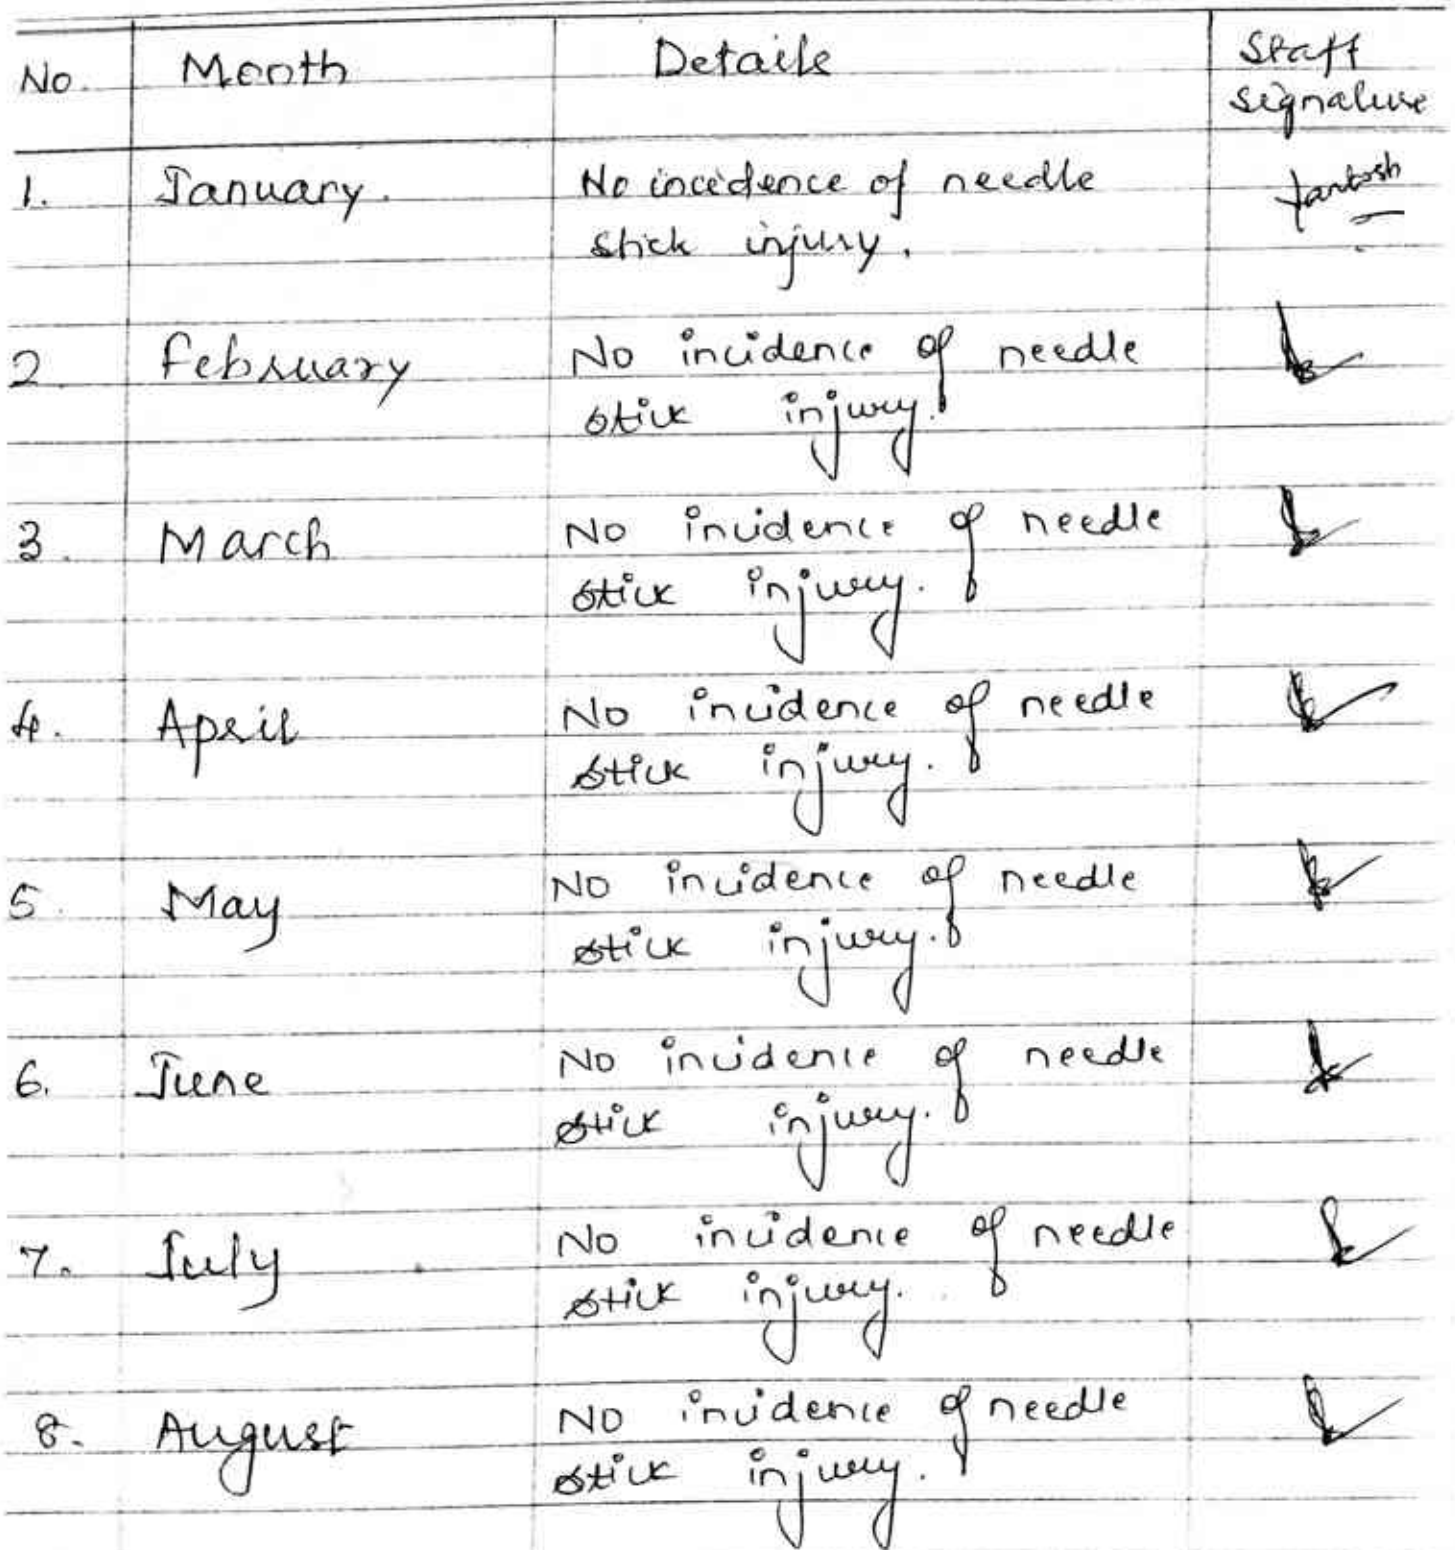 No. Month Details Staff
signature
1. January. No incidence of needle
stick injury.
2. February No incidence of needle
stick injury.
3. March No incidence of needle
stick injury.
4. April No incidence of needle
stick injury.
5. May No incidence of needle
stick injury.
6. June No incidence of needle
stick injury.
7. July No incidence of needle
stick injury.
8. August No incidence of needle
stick injury.